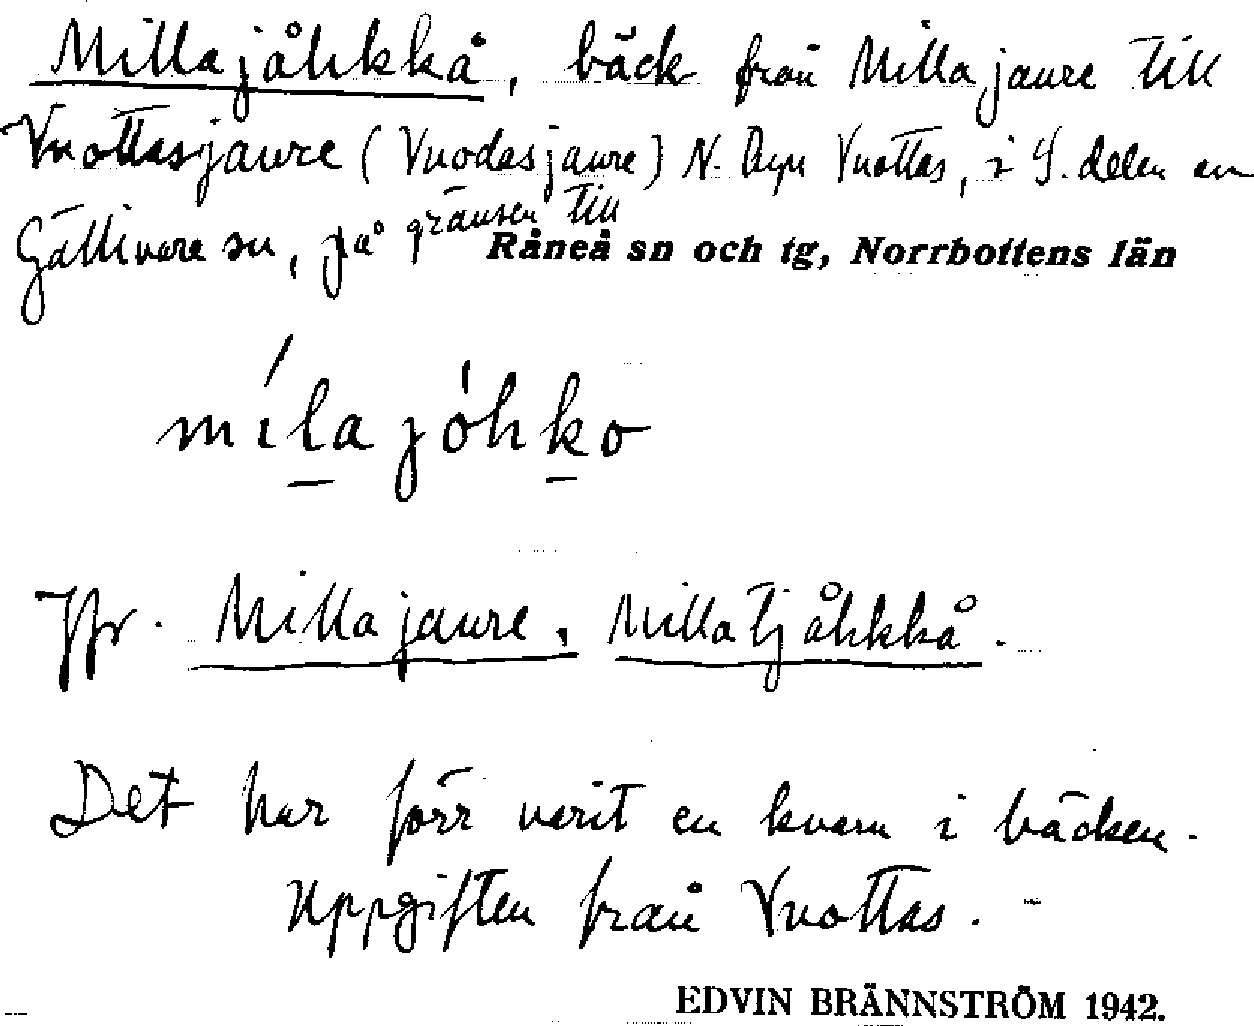 Millajåhkkå, bäck från Millajaure till
Vuottasjaure (Vuodasjaure) N. byn Vuottas, i S. delen av
Gällivare sn, på gränsen till Råneå sn och tg, Norrbottens län
mílajóhko
Jfr. Millajaure, Millatjåhkkå.
Det har förr varit en kvarn i bäcken.
Uppgiften från Vuottas. -
EDVIN BRÄNNSTRÖM 1942.